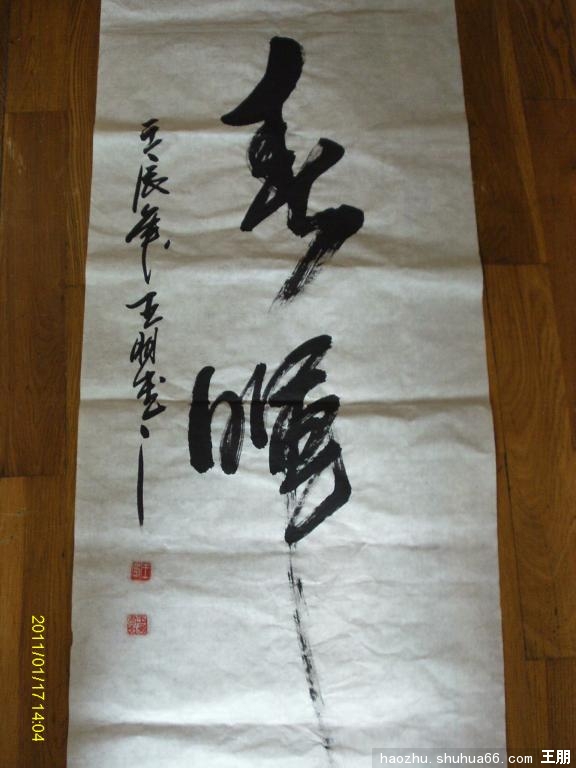 春晖
壬辰年王朋書
2011/01/17 14:04
haozhu.shuhua66.com 王朋